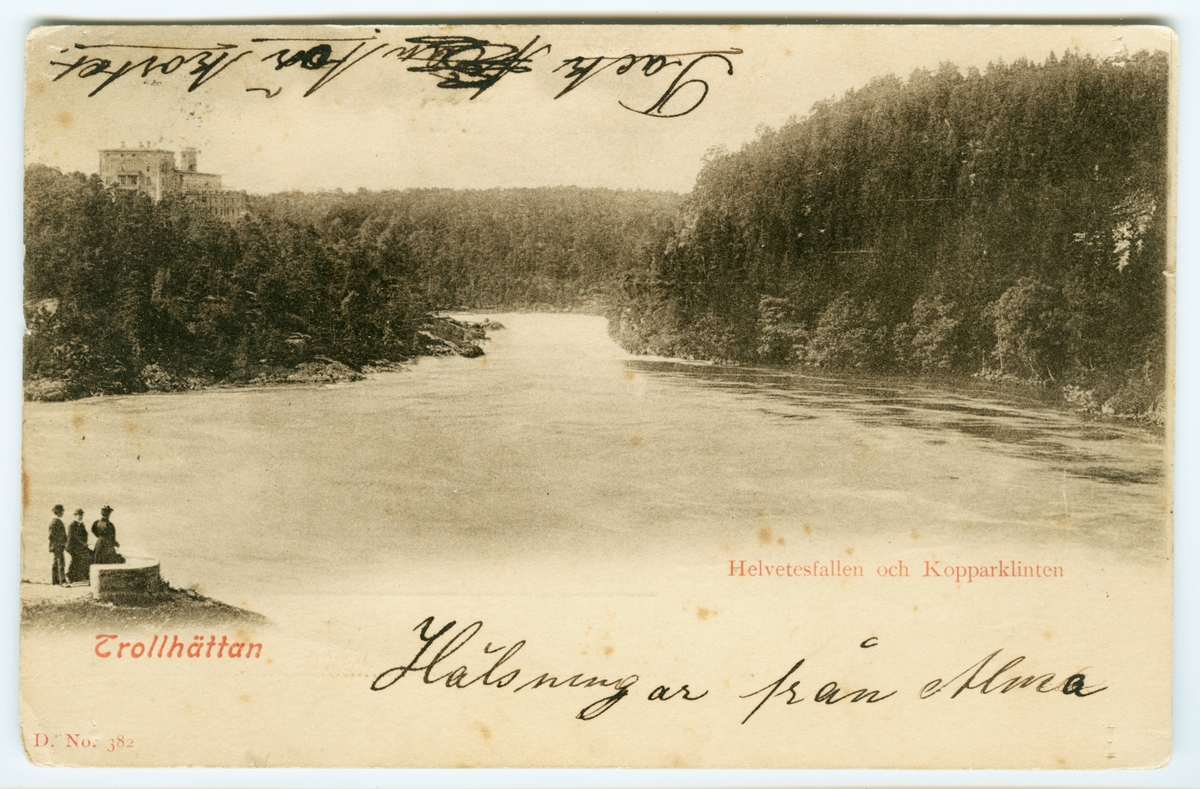 Tack för kortet.
Helvetesfallen och Kopparklinten
Trollhättan
Hälsningar från Alma
D. No. 382